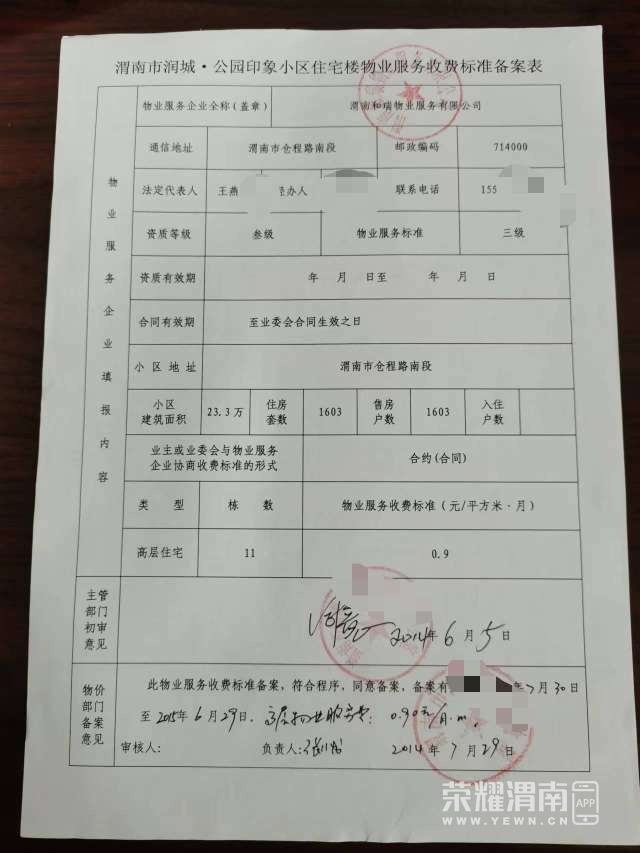 渭南市润城·公园印象小区住宅楼物业服务收费标准备案表
物业服务企业填报内容
物业服务企业全称(盖章) 渭南和瑞物业服务有限公司
通信地址 渭南市仓程路南段 邮政编码 714000
法定代表人 王燕 办人 联系电话 155
资质等级 叁级 物业服务标准 三级
资质有效期 年 月 日至 年 月 日
合同有效期 至业委会合同生效之日
小区地址 渭南市仓程路南段
小区
建筑面积 23.3万 住房
套数 1603 售房
户数 1603 入住
户数
业主或业委会与物业服务
企业协商收费标准的形式 合约(合同)
类 型 栋 数 物业服务收费标准(元/平方米·月)
高层住宅 11 0.9
主管
部门
初审
意见
2014年6月5日
物价
部门
备案
意见
此物业服务收费标准备案,符合程序,同意备案,备案有 年7月30日
至2015年6月29日. 高层物业服务费: 0.90元/月.m
审核人: 负责人: 2014年7月29日
荣耀渭南 APP
WWW.YEWN.CN